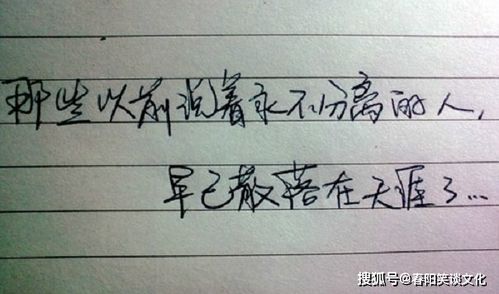 那些以前说着永不分离的人，
早已散落在天涯了...
搜狐号@春阳笑谈文化